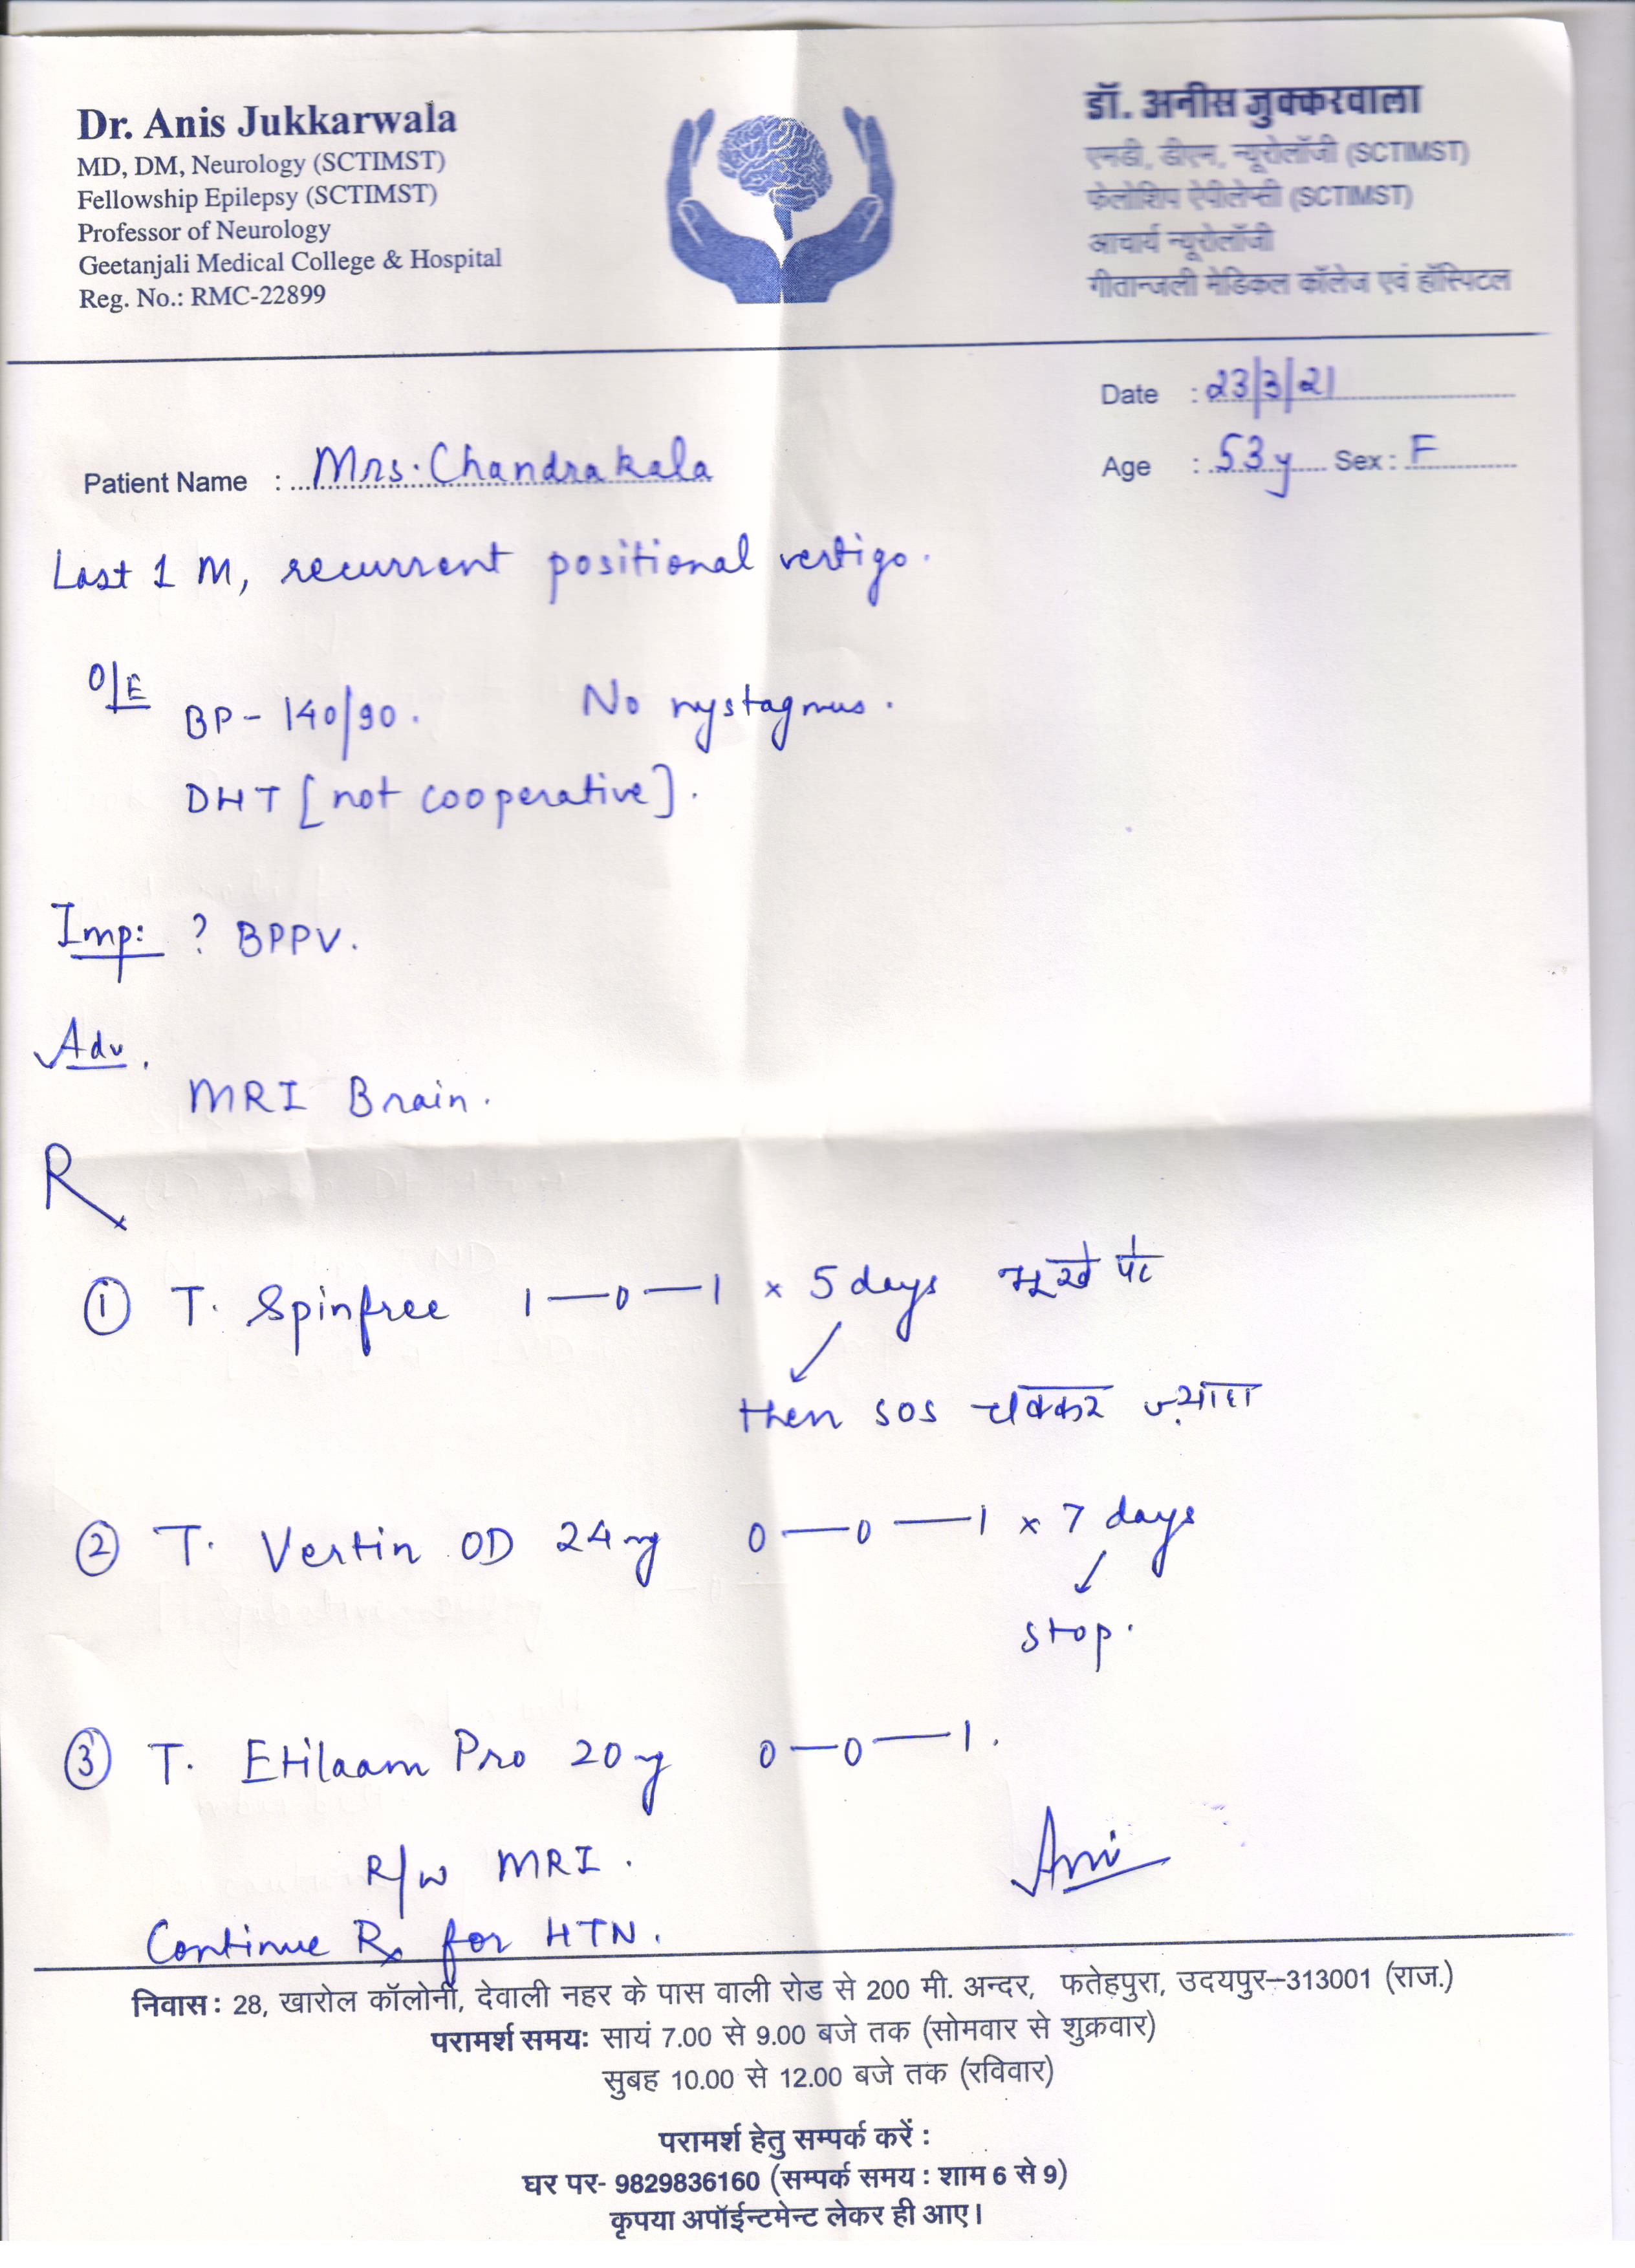 Dr. Anis Jukkarwala
MD, DM, Neurology (SCTIMST)
Fellowship Epilepsy (SCTIMST)
Professor of Neurology
Geetanjali Medical College & Hospital
Reg. No.: RMC-22899
डॉ. अनीस जुक्करवाला
एमडी, डीएम, न्यूरोलॉजी (SCTIMST)
फेलोशिप ऐपीलेप्सी (SCTIMST)
आचार्य न्यूरोलॉजी
गीतान्जली मेडिकल कॉलेज एवं हॉस्पिटल
Date : 23/3/21
Patient Name : Mrs. Chandrakala
Age : 53y Sex : F
Last 1 M, recurrent positional vertigo.
O/E
BP - 140/90. No nystagmus.
DHT [not cooperative].
Imp: ? BPPV.
Adv.
MRI Brain.
Rx
① T. Spinfree 1—0—1 x 5 days भूखे पेट
then SOS चक्कर ज्यादा
② T. Vertin OD 24mg 0—0—1 x 7 days
stop.
③ T. Etilaam Pro 20mg 0—0—1.
R/w MRI.
Continue Rx for HTN.
निवास : 28, खारोल कॉलोनी, देवाली नहर के पास वाली रोड से 200 मी. अन्दर, फतेहपुरा, उदयपुर–313001 (राज.)
परामर्श समय: सायं 7.00 से 9.00 बजे तक (सोमवार से शुक्रवार)
सुबह 10.00 से 12.00 बजे तक (रविवार)
परामर्श हेतु सम्पर्क करें :
घर पर- 9829836160 (सम्पर्क समय : शाम 6 से 9)
कृपया अपॉईन्टमेन्ट लेकर ही आए।